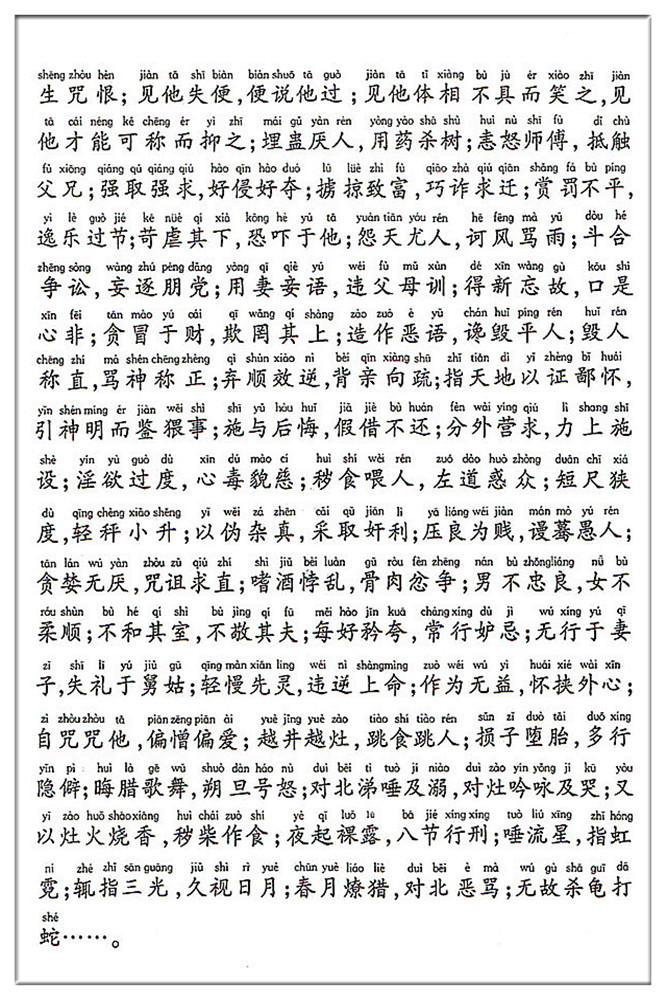 shēng zhòu hèn jiàn tā shī biàn biàn shuō tā guò jiàn tā tǐ xiàng bù jù ér xiào zhī jiàn
生咒恨；见他失便，便说他过；见他体相不具而笑之，见
tā cái néng kě chēng ér yì zhī mái gǔ yàn rén yòng yào shā shù huì nù shī fù dǐ chù
他才能可称而抑之；埋蛊厌人，用药杀树；恚怒师傅，抵触
fù xiōng qiáng qǔ qiáng qiú hào qīn hào duó lǔ lüè zhì fù qiǎo zhà qiú qiān shǎng fá bù píng
父兄；强取强求，好侵好夺；掳掠致富，巧诈求迁；赏罚不平，
yì lè guò jié kē nüè qí xià kǒng hè yú tā yuàn tiān yóu rén hē fēng mà yǔ dòu hé
逸乐过节；苛虐其下，恐吓于他；怨天尤人，诃风骂雨；斗合
zhēng sòng wàng zhú péng dǎng yòng qī qiè yǔ wéi fù mǔ xùn dé xīn wàng gù kǒu shì
争讼，妄逐朋党；用妻妾语，违父母训；得新忘故，口是
xīn fēi tān mào yú cái qī wǎng qí shàng zào zuò è yǔ chán huǐ píng rén huǐ rén
心非；贪冒于财，欺罔其上；造作恶语，谗毁平人；毁人
chēng zhí mà shén chēng zhèng qì shùn xiào nì bèi qīn xiàng shū zhǐ tiān dì yǐ zhèng bǐ huái
称直，骂神称正；弃顺效逆，背亲向疏；指天地以证鄙怀，
yǐn shén míng ér jiàn wěi shì shī yǔ hòu huǐ jiǎ jiè bù huán fèn wài yíng qiú lì shàng shī
引神明而鉴猥事；施与后悔，假借不还；分外营求，力上施
shè yín yù guò dù xīn dú mào cí huì shí wèi rén zuǒ dào huò zhòng duǎn chǐ xiá
设；淫欲过度，心毒貌慈；秽食喂人，左道惑众；短尺狭
dù qīng chèng xiǎo shēng yǐ wěi zá zhēn cǎi qǔ jiān lì yā liáng wéi jiàn mán mò yú rén
度，轻秤小升；以伪杂真，采取奸利；压良为贱，谩蓦愚人；
tān lán wú yàn zhòu zǔ qiú zhí shì jiǔ bèi luàn gǔ ròu fèn zhēng nán bù zhōng liáng nǚ bù
贪婪无厌，咒诅求直；嗜酒悖乱，骨肉忿争；男不忠良，女不
róu shùn bù hé qí shì bù jìng qí fū měi hào jīn kuā cháng xíng dù jì wú xíng yú qī
柔顺；不和其室，不敬其夫；每好矜夸，常行妒忌；无行于妻
zǐ shī lǐ yú jiù gū qīng màn xiān líng wéi nì shàng mìng zuò wéi wú yì huái xié wài xīn
子，失礼于舅姑；轻慢先灵，违逆上命；作为无益，怀挟外心；
zì zhòu zhòu tā piān zēng piān ài yuè jǐng yuè zào tiào shí tiào rén sǔn zǐ duò tāi duō xíng
自咒咒他，偏憎偏爱；越井越灶，跳食跳人；损子堕胎，多行
yǐn pì huì là gē wǔ shuò dàn háo nù duì běi tì tuò jí niào duì zào yín yǒng jí kū yòu
隐僻；晦腊歌舞，朔旦号怒；对北涕唾及溺，对灶吟咏及哭；又
yǐ zào huǒ shāo xiāng huì chái zuò shí yè qǐ luǒ lù bā jié xíng xíng tuò liú xīng zhǐ hóng
以灶火烧香，秽柴作食；夜起裸露，八节行刑；唾流星，指虹
ní zhé zhǐ sān guāng jiǔ shì rì yuè chūn yuè liáo liè duì běi è mà wú gù shā guī dǎ
霓；辄指三光，久视日月；春月燎猎，对北恶骂；无故杀龟打
shé
蛇……。